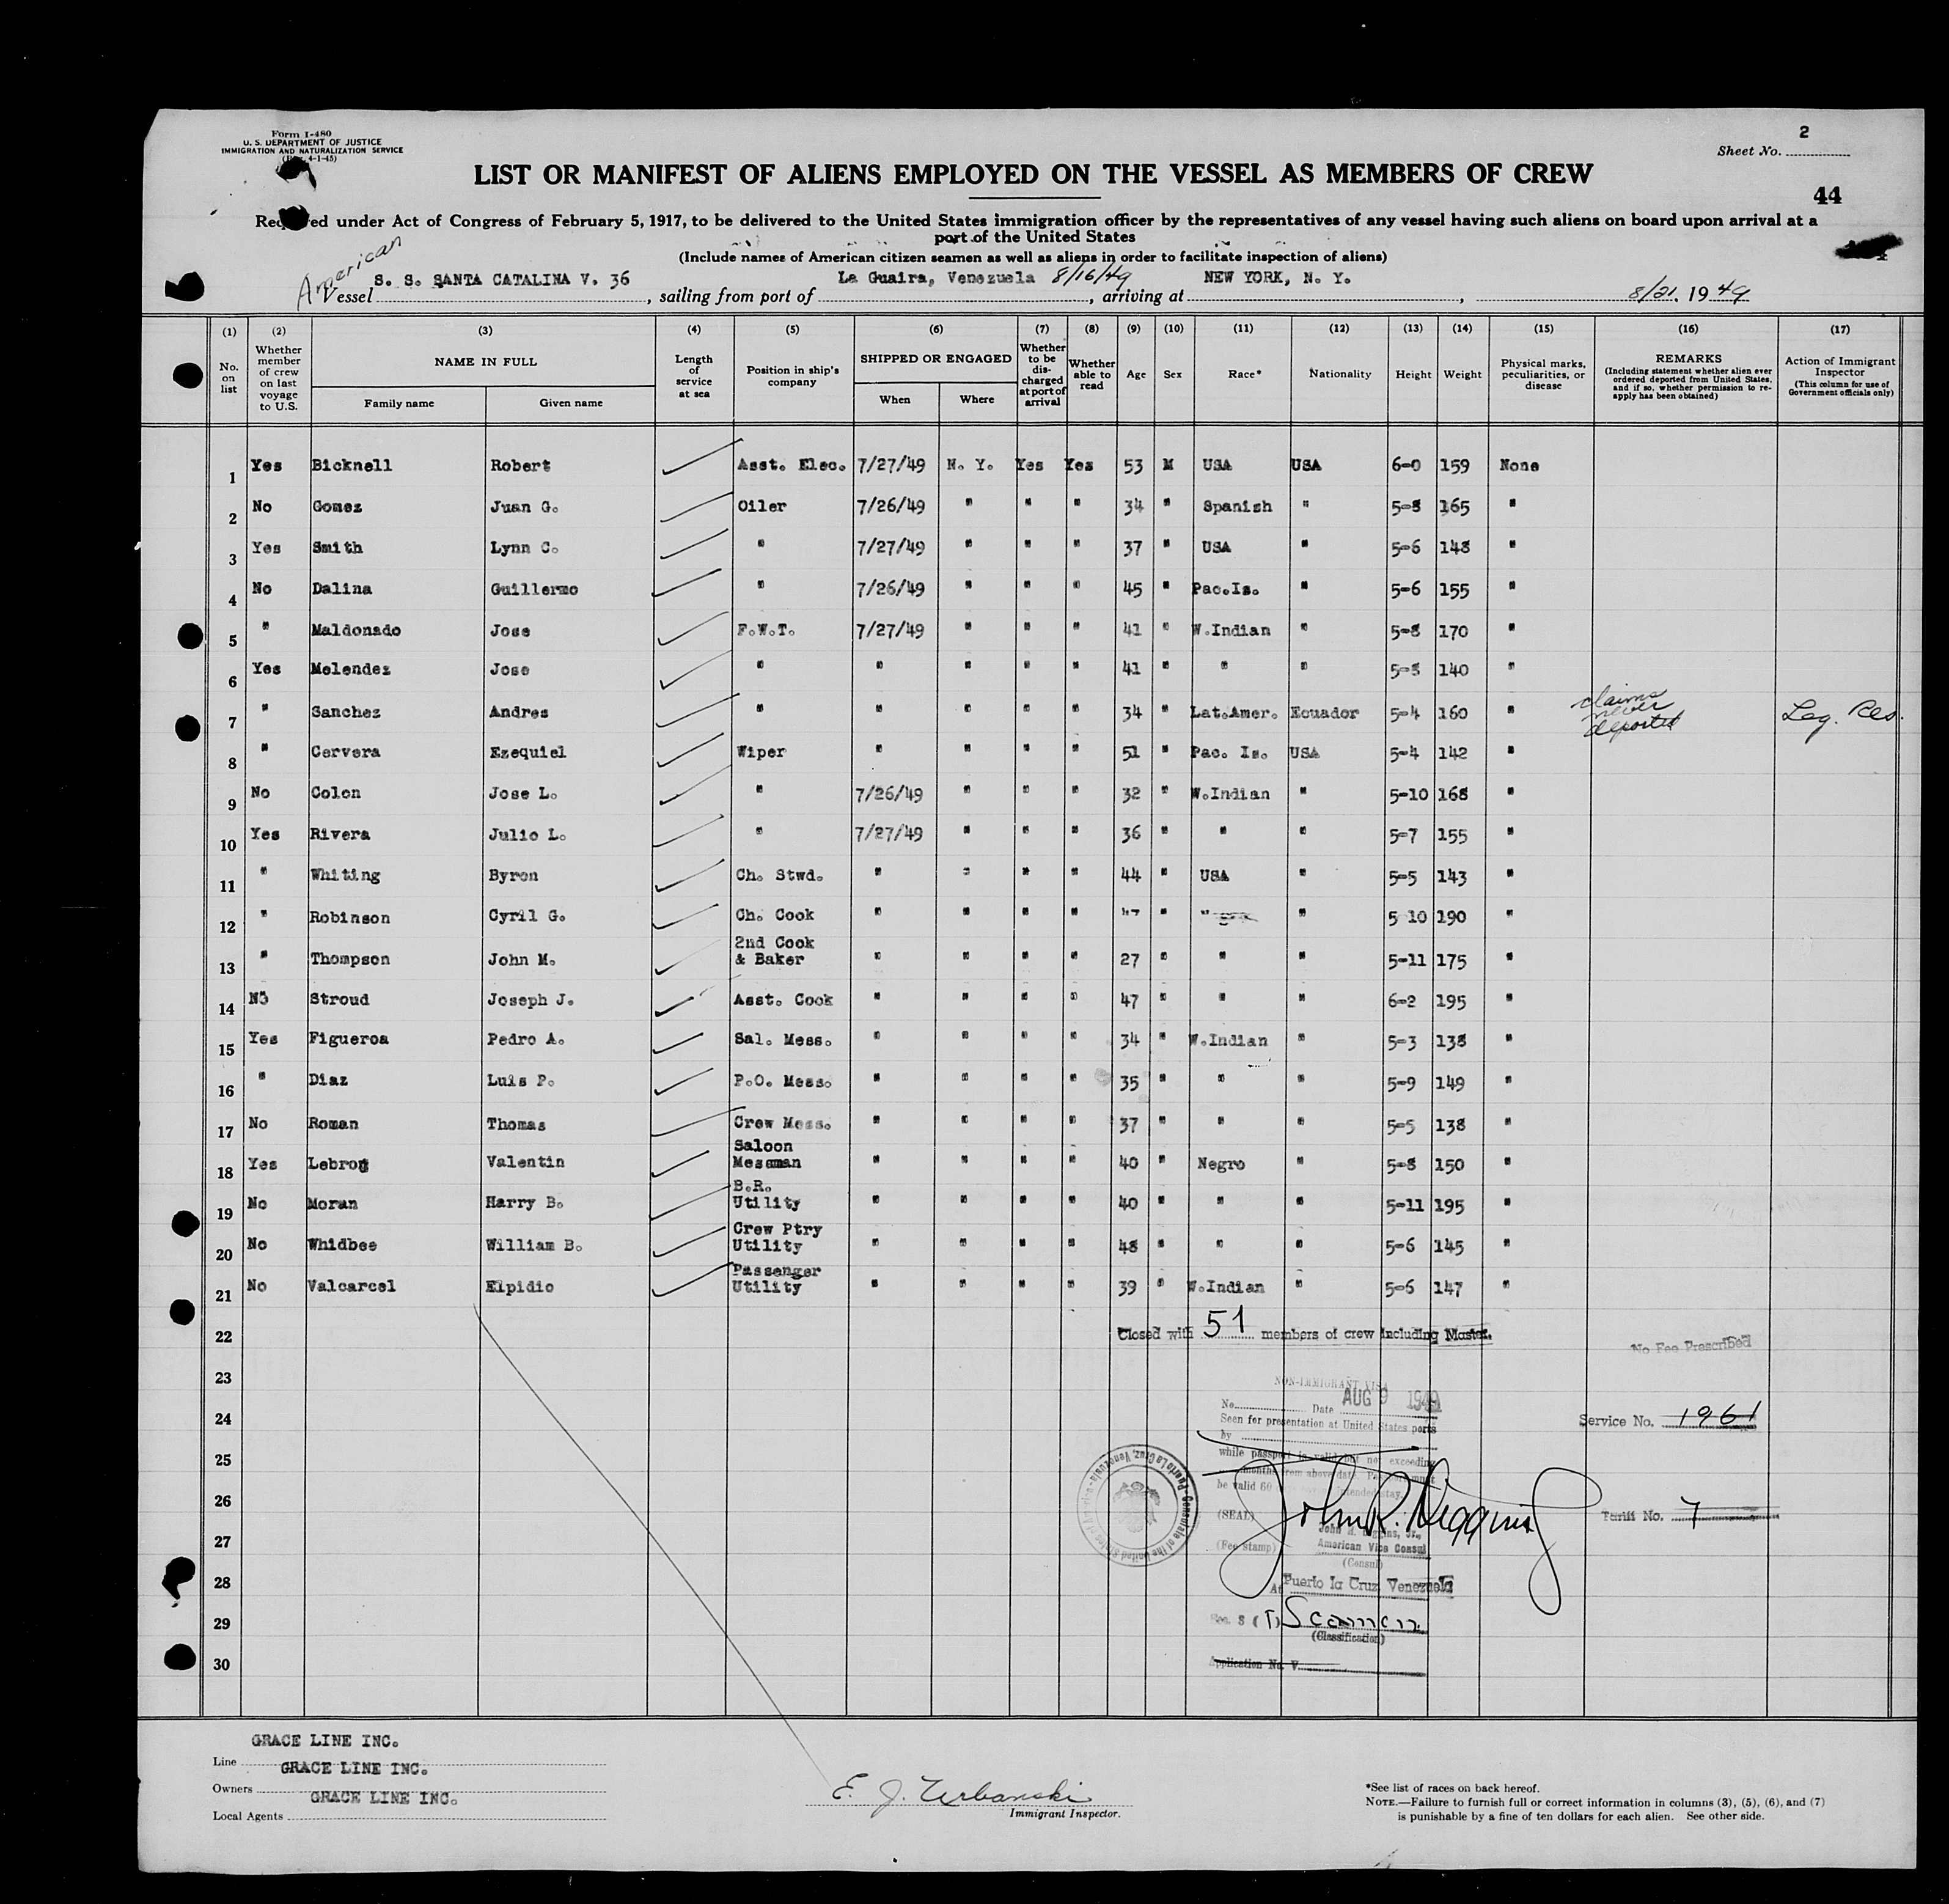 Form I-480
U. S. DEPARTMENT OF JUSTICE
IMMIGRATION AND NATURALIZATION SERVICE
4-1-45)
2
Sheet No.
LIST OR MANIFEST OF ALIENS EMPLOYED ON THE VESSEL AS MEMBERS OF CREW
44
under Act of Congress of February 5, 1917, to be delivered to the United States immigration officer by the representatives of any vessel having such aliens on board upon arrival at a
port of the United States
(Include names of American citizen seamen as well as aliens in order to facilitate inspection of aliens)
American
Vessel S. S. SANTA CATALINA V. 36, sailing from port of La Guaira, Venezuela 8/16/49, arriving at NEW YORK, N. Y., 8/21, 1949
(1) (2) (3) (4) (5) (6) (7) (8) (9) (10) (11) (12) (13) (14) (15) (16) (17)
No. on list
Whether member of crew on last voyage to U.S.
NAME IN FULL
Family name Given name
Length of service at sea
Position in ship's company
SHIPPED OR ENGAGED
When Where
Whether to be discharged at port of arrival
Whether able to read
Age Sex Race* Nationality Height Weight
Physical marks, peculiarities, or disease
REMARKS
(Including statement whether alien ever ordered deported from United States, and if so, whether permission to re-apply has been obtained)
Action of Immigrant Inspector
(This column for use of Government officials only)
1 Yes Bicknell Robert Asst. Elec. 7/27/49 N. Y. Yes Yes 53 M USA USA 6-0 159 None
2 No Gomez Juan G. Oiler 7/26/49 " " " 34 " Spanish " 5-8 165 "
3 Yes Smith Lynn C. " 7/27/49 " " " 37 " USA " 5-6 148 "
4 No Dalina Guillermo " 7/26/49 " " " 45 " Pac.Is. " 5-6 155 "
5 " Maldonado Jose F.W.T. 7/27/49 " " " 41 " W.Indian " 5-8 170 "
6 Yes Melendez Jose " " " " " 41 " " " 140 "
7 " Sanchez Andres " " " " " 34 " Lat.Amer. Ecuador 5-4 160 " claims never deported Leg. Res.
8 " Cervera Ezequiel Wiper " " " " 51 " Pac. Is. USA 5-4 142 "
9 No Colon Jose L. " 7/26/49 " " " 32 " W.Indian " 5-10 168 "
10 Yes Rivera Julio L. " 7/27/49 " " " 36 " " " 5-7 155 "
11 " Whiting Byron Ch. Stwd. " " " " 44 " USA " 5-5 143 "
12 " Robinson Cyril G. Ch. Cook " " " " " " " 5 10 190 "
13 " Thompson John M. 2nd Cook & Baker " " " " 27 " " " 5-11 175 "
14 No Stroud Joseph J. Asst. Cook " " " " 47 " " " 6-2 195 "
15 Yes Figueroa Pedro A. Sal. Mess. " " " " 34 " W.Indian " 5-3 138 "
16 " Diaz Luis P. P.O. Mess. " " " " 35 " " " 5-9 149 "
17 No Roman Thomas Crew Mess. " " " " 37 " " " 5-5 138 "
18 Yes Lebron Valentin Saloon Messman " " " " 40 " Negro " 5-8 150 "
19 No Moran Harry B. B.R. Utility " " " " 40 " " " 5-11 195 "
20 No Whidbee William B. Crew Ptry Utility " " " " 48 " " " 5-6 145 "
21 No Valcarcel Elpidio Passenger Utility " " " " 39 " W.Indian " 5-6 147 "
22 Closed with 51 members of crew including Master.
No Fee Prescribed
23
NON-IMMIGRANT VISA
No. Date AUG 9 1949
24
Seen for presentation at United States ports
Service No. 1961
by
25
while passport is valid but not exceeding
months from above date. Passport must
be valid 60 intended stay.
Consulate of the United States of America - Puerto La Cruz, Venezuela
26
(SEAL) John R. Diggins
Tariff No. 7
27
John R. Diggins, Jr.,
American Vice Consul
(Fee stamp)
(Consul)
28
At Puerto la Cruz, Venezuela
29
Sec. 3 (5) Seamen
(Classification)
30
Application No. V
GRACE LINE INC.
Line
GRACE LINE INC.
Owners
GRACE LINE INC.
Local Agents
E. J. Urbanski
Immigrant Inspector.
*See list of races on back hereof.
NOTE.—Failure to furnish full or correct information in columns (3), (5), (6), and (7)
is punishable by a fine of ten dollars for each alien. See other side.